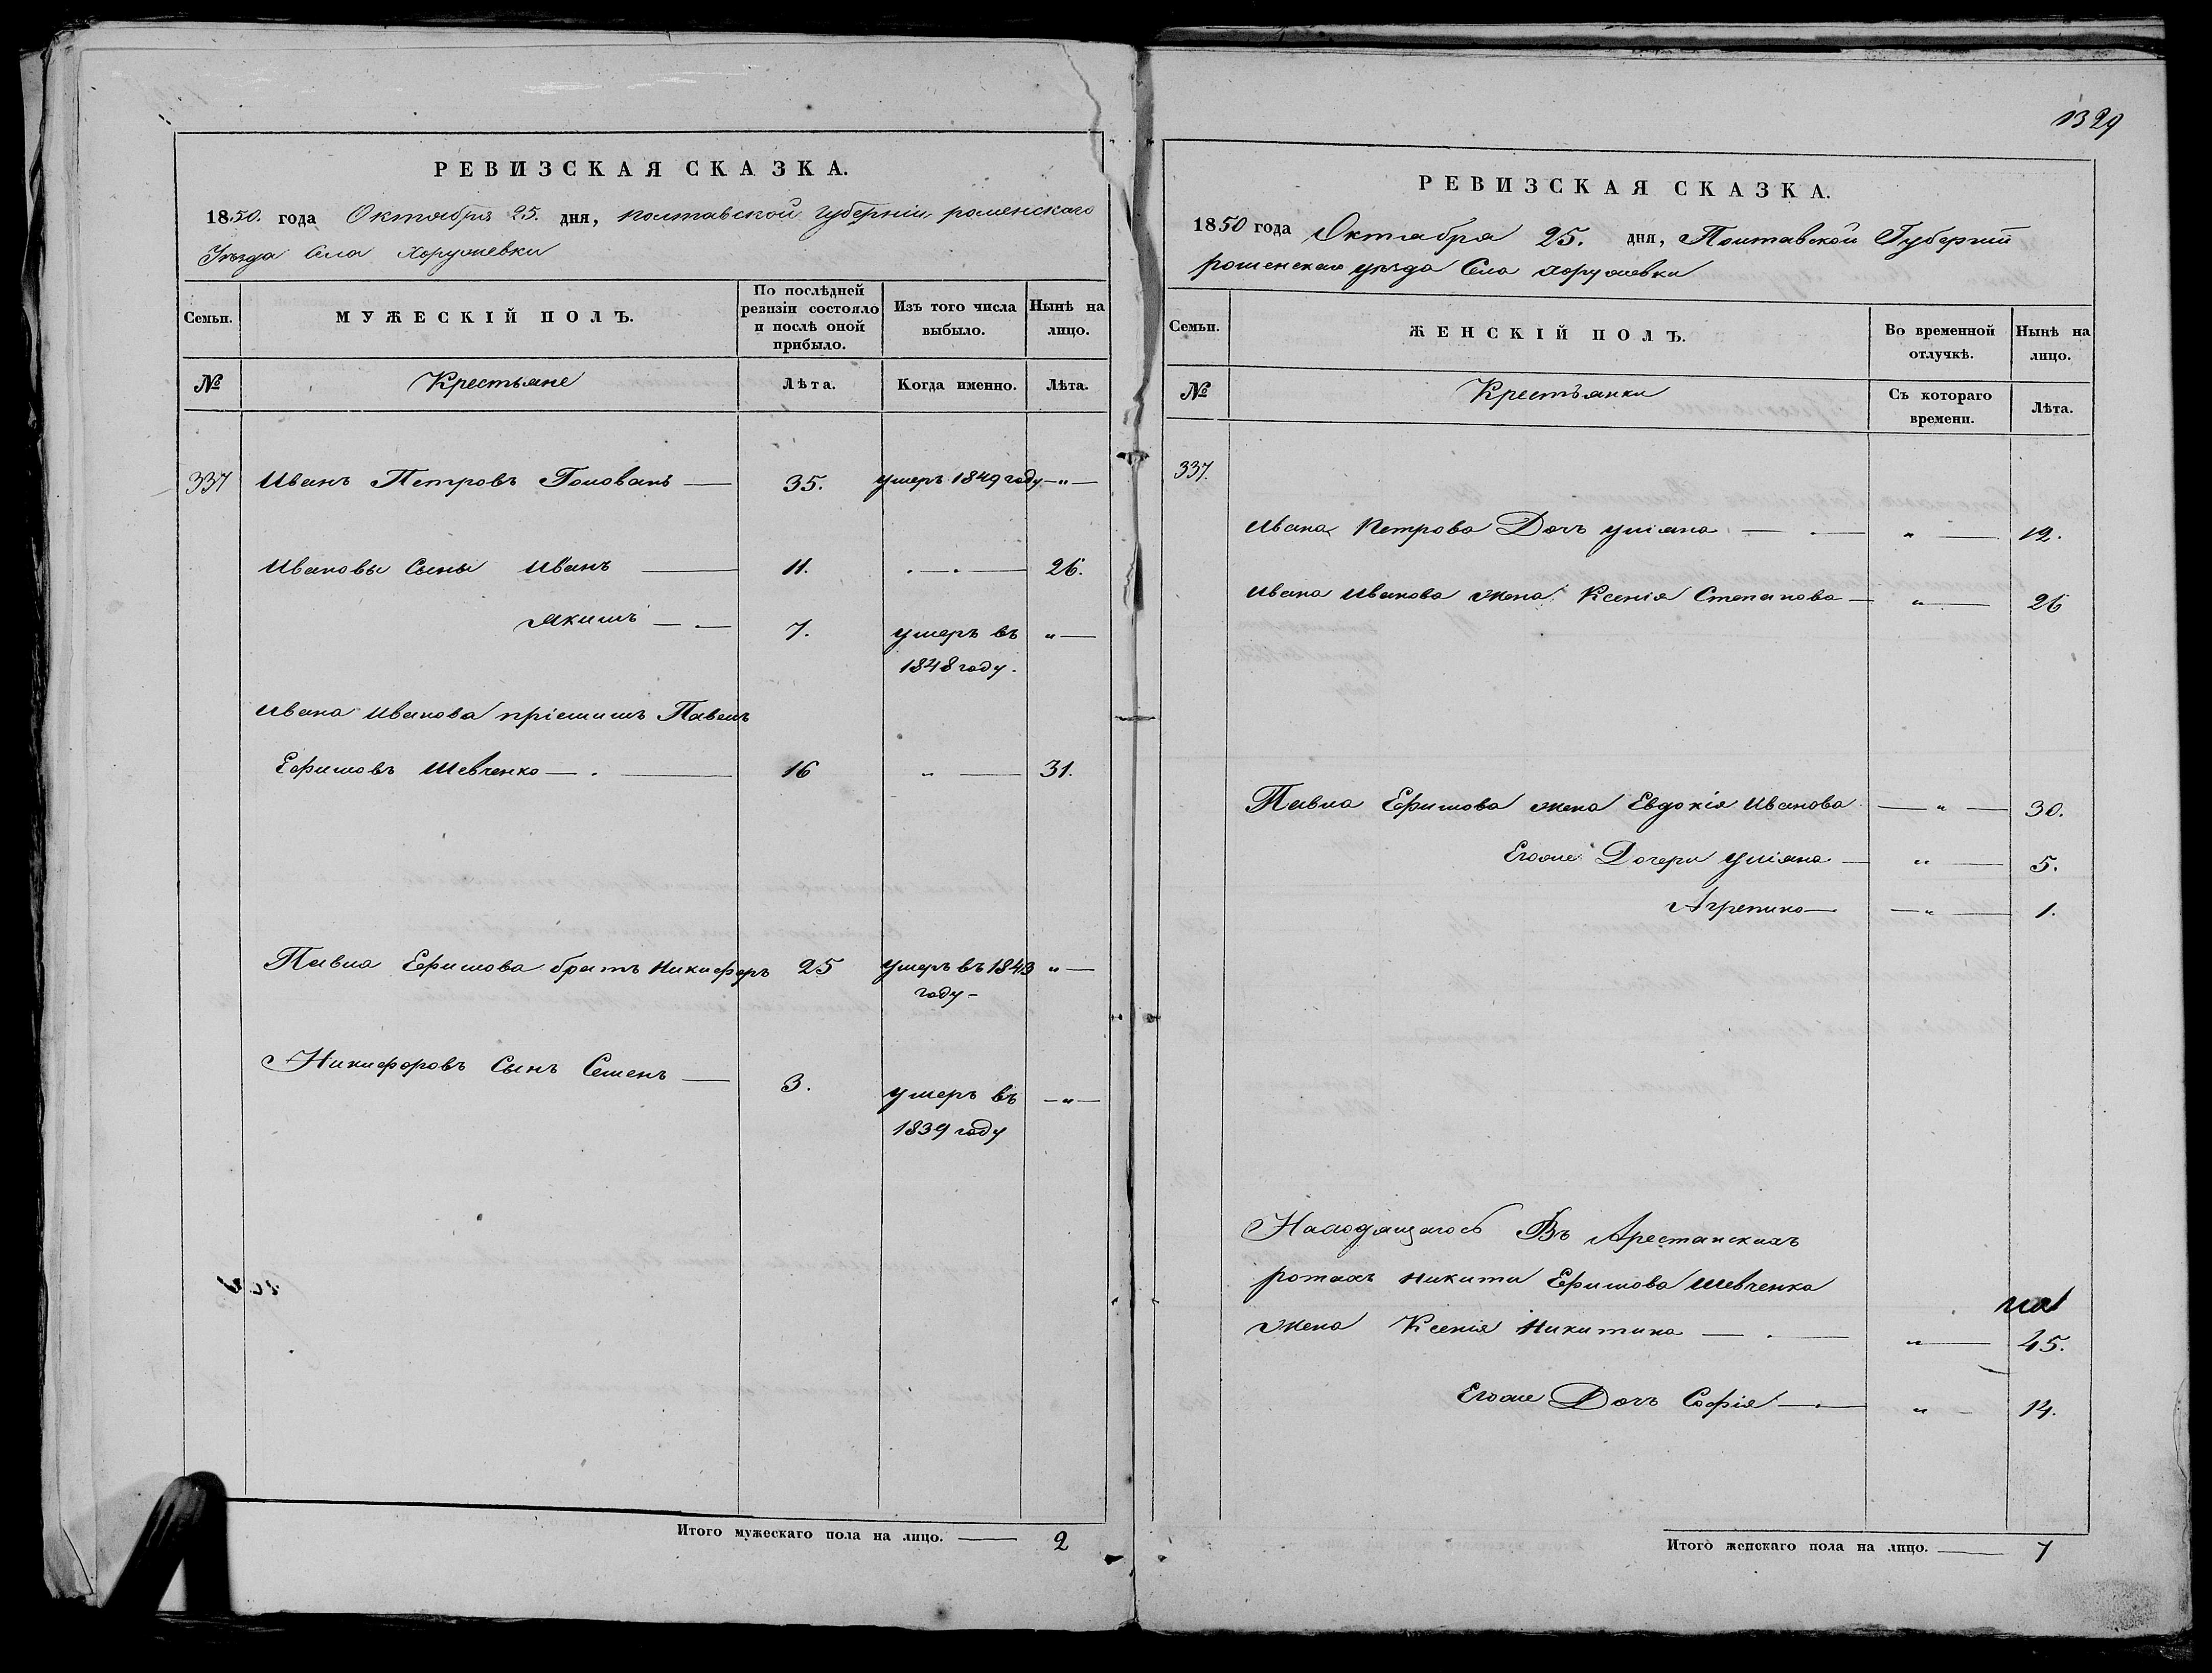 РЕВИЗСКАЯ СКАЗКА.
1850. года Октября 25. дня, полтавской губерніи роменскаго
Уѣзда Села Хоружевки
Семьи.
МУЖЕСКІЙ ПОЛЪ.
По послѣдней ревизіи состояло и послѣ оной прибыло.
Изъ того числа выбыло.
Нынѣ на лицо.
№ Крестьяне Лѣта. Когда именно. Лѣта.
337 Иванъ Петровъ Головань — 35. умеръ 1849 году — " —
Ивановы Сыны Иванъ — 11. . — . — 26.
Якимъ — . — 7. умеръ въ " —
1848 году.
Ивана Иванова пріемишъ Павелъ
Ефимовъ Шевченко — . — 16 " — 31.
Павла Ефимова братъ Никифоръ 25 умеръ въ 1843 " —
году —
Никифоровъ Сынъ Семенъ — 3. умеръ въ — " —
1839 году
Итого мужескаго пола на лицо. — 2
1329
РЕВИЗСКАЯ СКАЗКА.
1850 года Октабра 25. дня, Полтавской Губерніи
роменскаго уѣзда Села Хоружевки
Семьи.
ЖЕНСКІЙ ПОЛЪ.
Во временной отлучкѣ.
Нынѣ на лицо.
№ Крестьянки Съ котораго времени. Лѣта.
337.
Ивана Петрова Дочъ Уліяна — . — " — 12.
Ивана Иванова жена Ксенія Степанова — " — 26
Павла Ефимова жена Евдокія Иванова — " — 30.
Егоже Дочери Уліяна — " — 5.
Агрепина — — " — 1.
Находящагось Въ Арестанскихъ
ротахъ Никити Ефимова Шевченка
жена Ксенія Никитина — . — " — 45.
Егоже Дочъ Софія — . — " — 14.
Итого женскаго пола на лицо. — 7